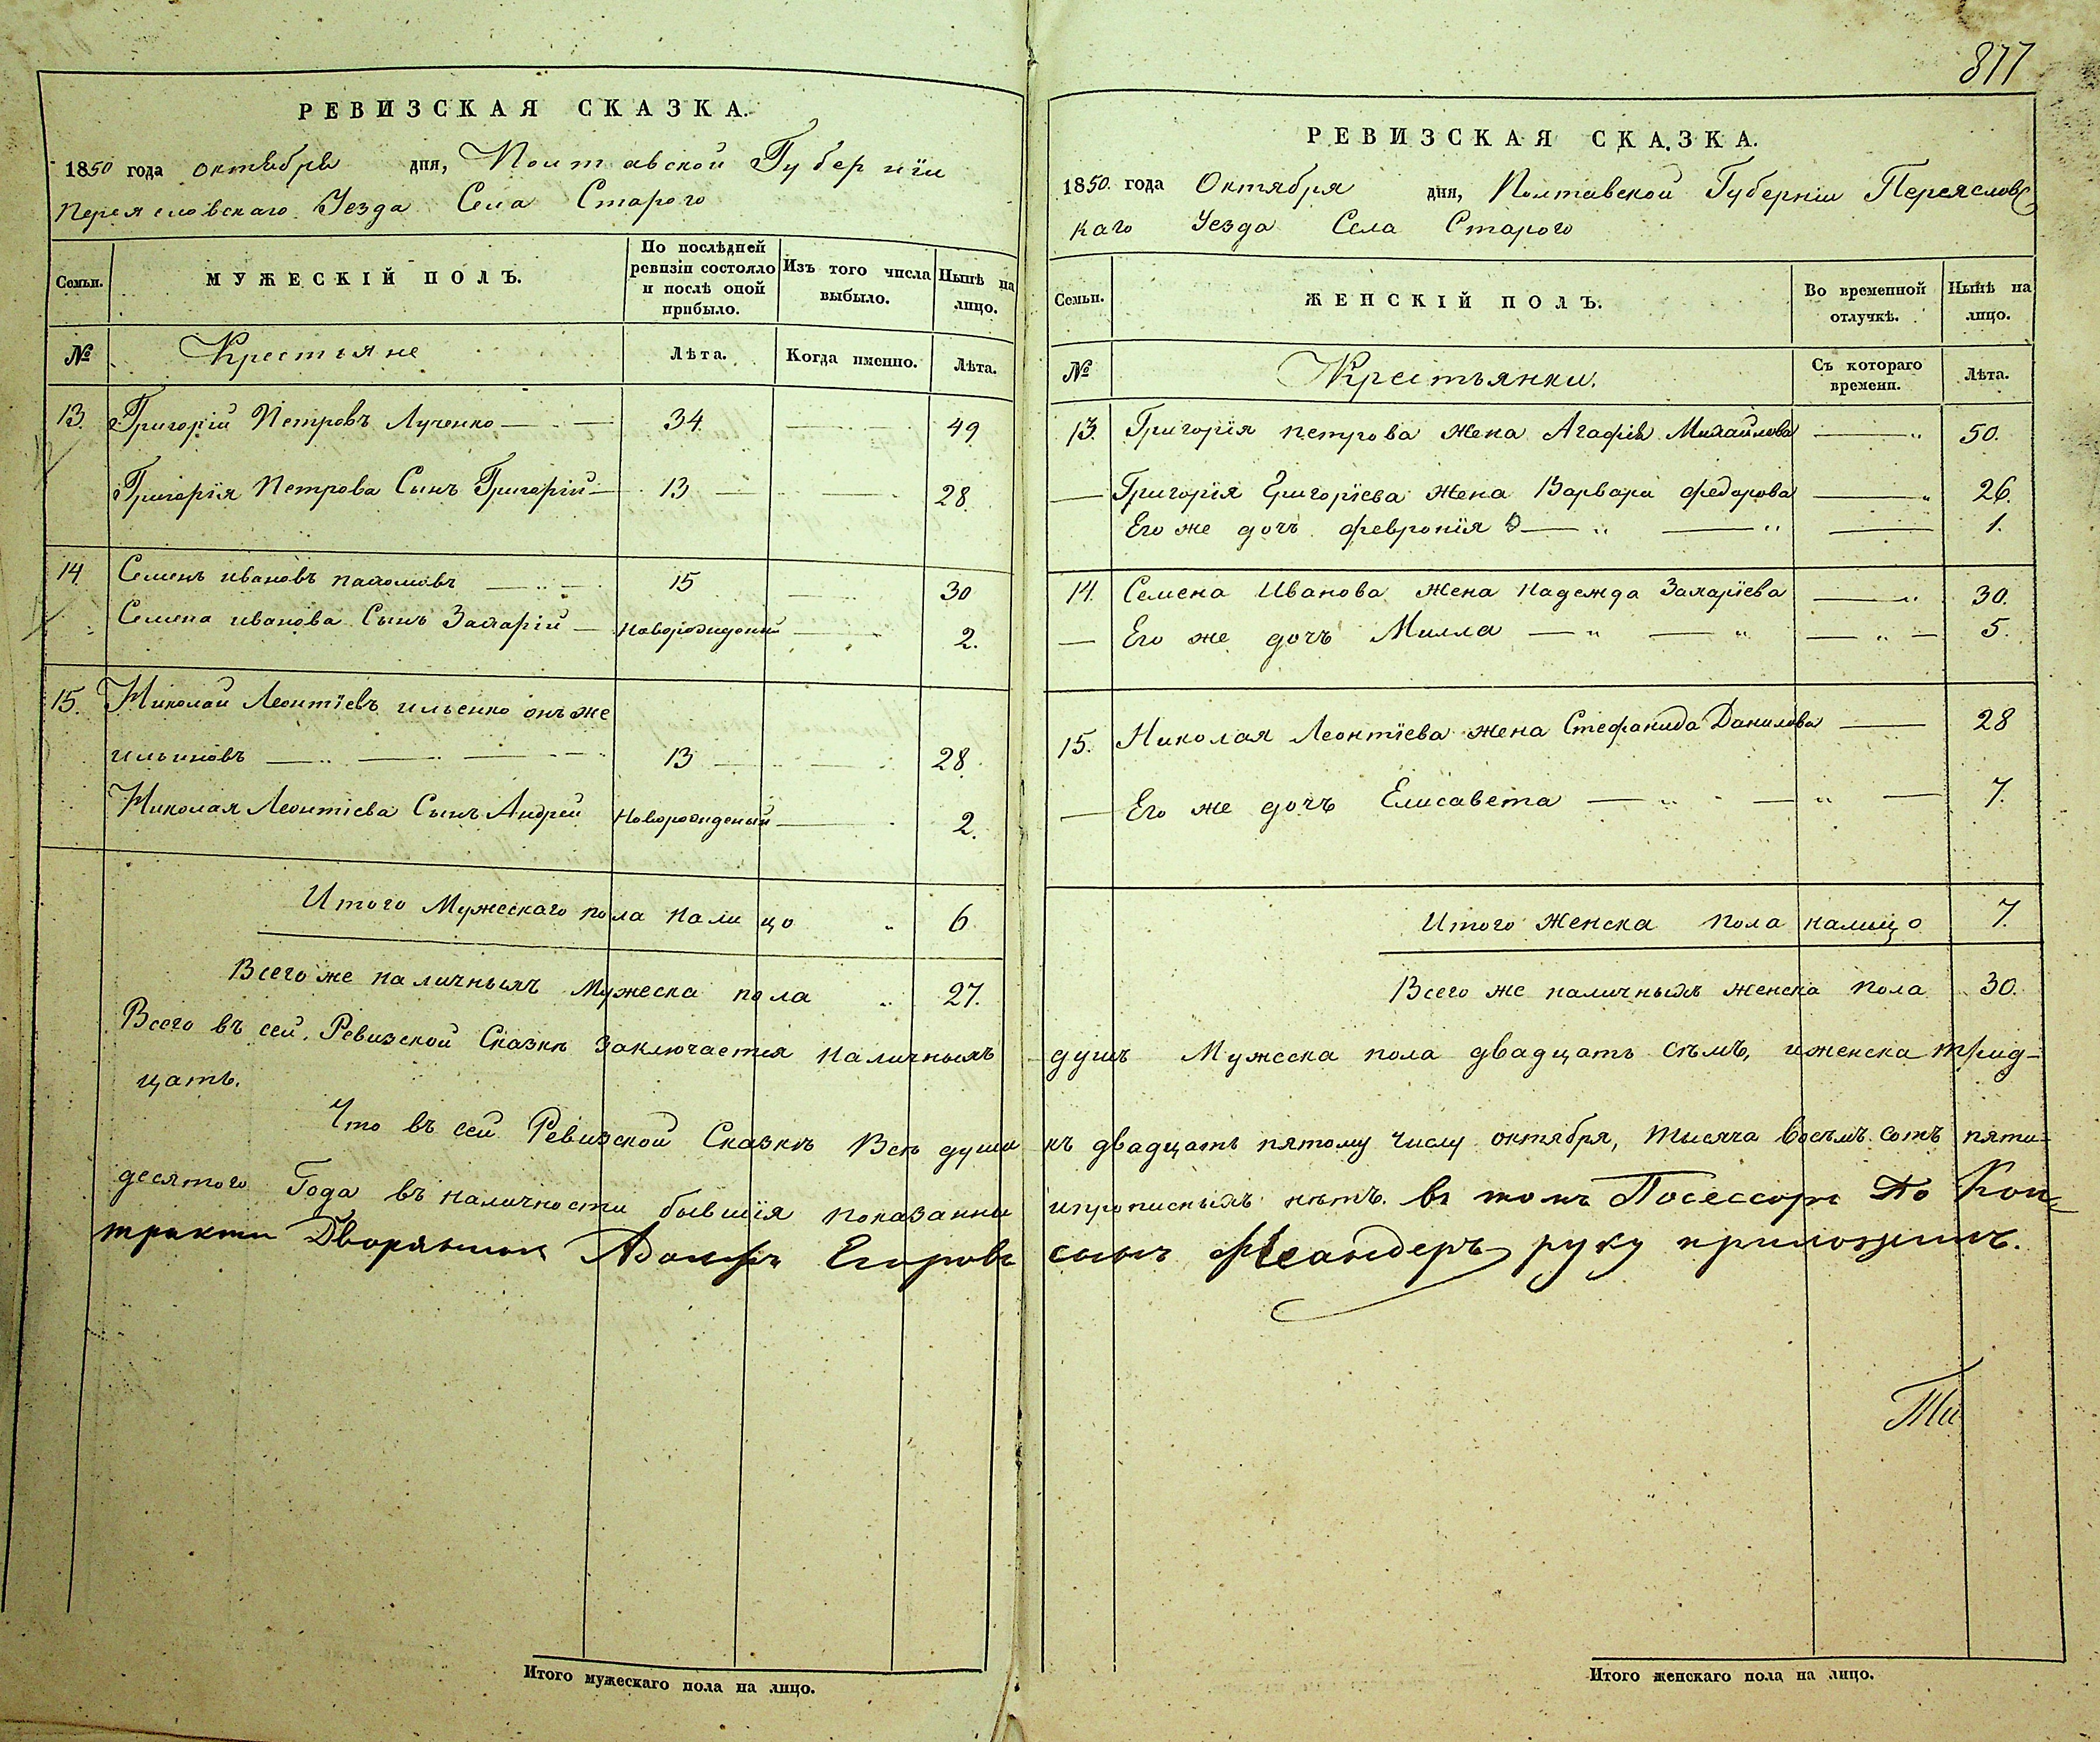 877
РЕВИЗСКАЯ СКАЗКА.
1850 года октября дня, Полтавской Губерніи
Переясловскаго Уезда Села Старого
Семьи. МУЖЕСКІЙ ПОЛЪ. По послѣдней ревизіи состояло и послѣ оной прибыло. Изъ того числа выбыло. Нынѣ на лицо.
№ Крестьяне Лѣта. Когда именно. Лѣта.
13. Григорій Петровъ Лученко 34. 49
Григорія Петрова Сынъ Григорій 13 28.
14 Семенъ ивановъ 15 30
Семена иванова Сынъ Захарій новорожденый 2.
15. Николай Леонтіевъ ильенко онъ же
ильиновъ 13 28.
Николая Леонтіева Сынъ Андрей новорожденый 2.
Итого Мужескаго пола налицо 6
Всего же наличныхъ Мужеска пола 27.
Всего въ сей Ревизской Сказкѣ заключается наличныхъ
цать.
Что въ сей Ревизской Сказкѣ Всѣ души
десятого Года въ наличности бывшія показанны
тракту Дворянинъ Адольфъ Егоровъ
Итого мужескаго пола на лицо.
РЕВИЗСКАЯ СКАЗКА.
1850. года Октября дня, Полтавской Губерніи Переяслов
каго Уезда Села Старого
Семьи. ЖЕНСКІЙ ПОЛЪ. Во временной отлучкѣ. Нынѣ на лицо.
№ Крестьянки. Съ котораго времени. Лѣта.
13. Григорія петрова жена Агафія Михайлова 50.
Григорія Григоріева жена Варвара федорова 26.
Его же дочь февронія 1.
14. Семена Иванова жена надежда Захаріева 30.
Его же дочь Милла 5.
15. Николая Леонтіева жена Стефанида Данилова 28
Его же дочь Елисавета 7.
Итого женска пола налицо 7.
Всего же наличныхъ женска пола 30.
душъ Мужеска пола двадцать сѣмъ, иженска трид-
къ двадцать пятому числу октября, тисяча восѣмъ сотъ пяти-
ипрописныхъ нѣтъ. въ томъ Посессоръ По Кон-
сынъ руку приложилъ.
Итого женскаго пола на лицо.